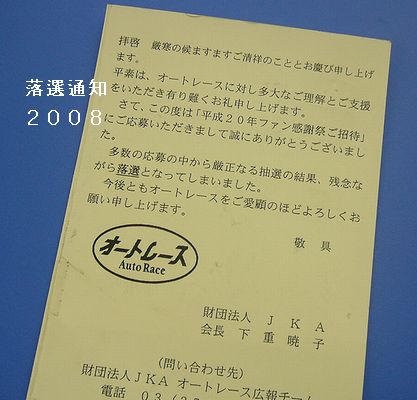 落選通知
２００８
拝啓　厳寒の候ますますご清祥のこととお慶び申し上げ
ます。
平素は、オートレースに対し多大なご理解とご支援
をいただき有り難くお礼申し上げます。
さて、この度は「平成２０年ファン感謝祭ご招待」
にご応募いただきまして誠にありがとうございまし
た。
多数の応募の中から厳正なる抽選の結果、残念な
がら落選となってしまいました。
今後ともオートレースをご愛顧のほどよろしくお
願い申し上げます。
敬　具
オートレース
Auto Race
財団法人　ＪＫＡ
会長　下　重　暁　子
(問い合わせ先)
財団法人ＪＫＡ オートレース広報チーム
電話　０３